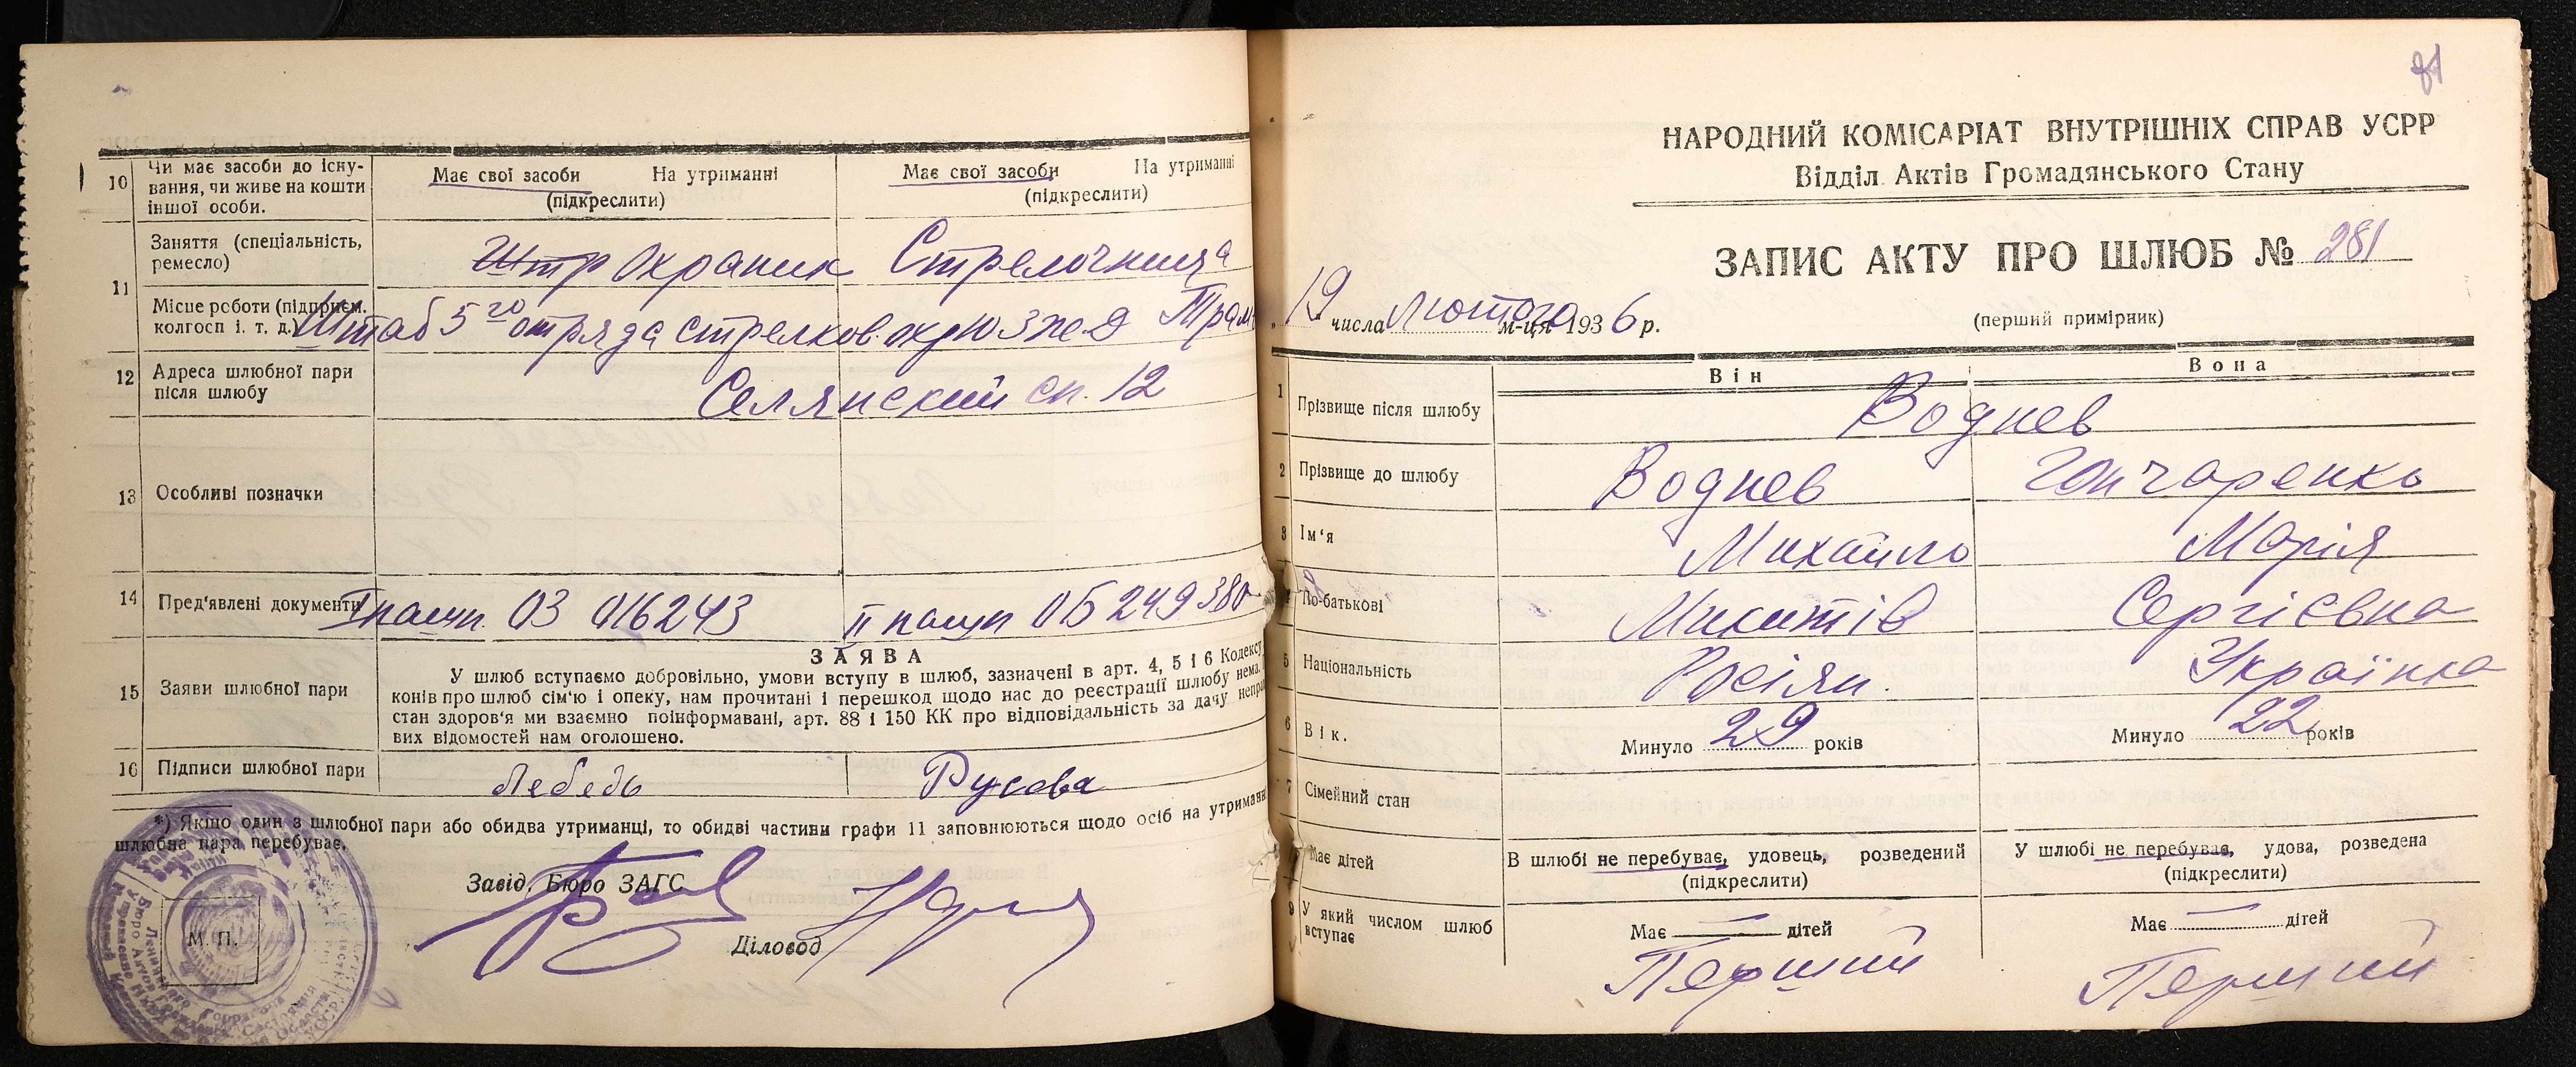 10 Чи має засоби до існу-
вання, чи живе на кошти
іншої особи.
Має свої засоби На утриманні
(підкреслити)
Має свої засоби На утриманні
(підкреслити)
11 Заняття (спеціальність,
ремесло)
Штр Охраник Стрелочница
Місце роботи (підприєм.
колгосп і. т. д.)
Штаб 5го отряда стрелков. охр ЮЗ жел Трам
12 Адреса шлюбної пари
після шлюбу
Селянский сп. 12
13 Особливі позначки
14 Пред'явлені документи
I пашп. 03 016243 II пашп 0Б 249380
ЗАЯВА
15 Заяви шлюбної пари
У шлюб вступаємо добровільно, умови вступу в шлюб, зазначені в арт. 4, 5 і 6 Кодексу
конів про шлюб сім'ю і опеку, нам прочитані і перешкод щодо нас до реєстрації шлюбу нема.
стан здоров'я ми взаємно поінформавані, арт. 88 і 150 КК про відповідальність за дачу неправ
вих відомостей нам оголошено.
16 Підписи шлюбної пари
Лебедь Русова
*) Якшо один з шлюбної пари або обидва утриманці, то обидві частини графи 11 заповнюються щодо осіб на утриманні
шлюбна пара перебуває.
Завід. Бюро ЗАГС
М. П.
Діловод
81
НАРОДНИЙ КОМІСАРІАТ ВНУТРІШНІХ СПРАВ УСРР
Відділ Актів Громадянського Стану
ЗАПИС АКТУ ПРО ШЛЮБ № 281
19 числа лютого м-ця 1936 р.
(перший примірник)
Він Вона
1 Прізвище після шлюбу Воднев
2 Прізвище до шлюбу Воднев Гончаренко
3 Ім'я Михайло Марія
По-батькові Микитів Сергієвна
5 Національність Росіян. Українка
6 Вік. Минуло 29 років Минуло 22 років
7 Сімейний стан
В шлюбі не перебуває, удовець, розведений
(підкреслити)
У шлюбі не перебуває, удова, розведена
(підкреслити)
Має дітей
Має — дітей Має — дітей
9 У який числом шлюб
вступає
Перший Перший